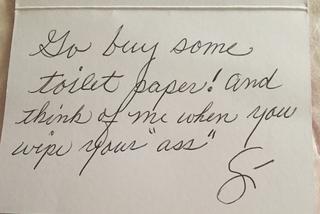 Go buy some
toilet paper! and
think of me when you
wipe your "ass"